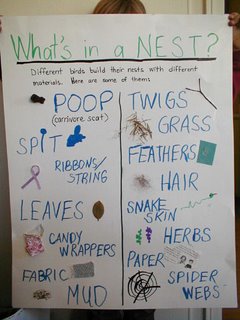 What's in a NEST?
Different birds build their nests with different
materials. Here are some of them:
POOP
(carnivore scat)
SPIT
RIBBONS/
STRING
LEAVES
CANDY
WRAPPERS
FABRIC
MUD
TWIGS
GRASS
FEATHERS
HAIR
SNAKE
SKIN
HERBS
PAPER
SPIDER
WEBS